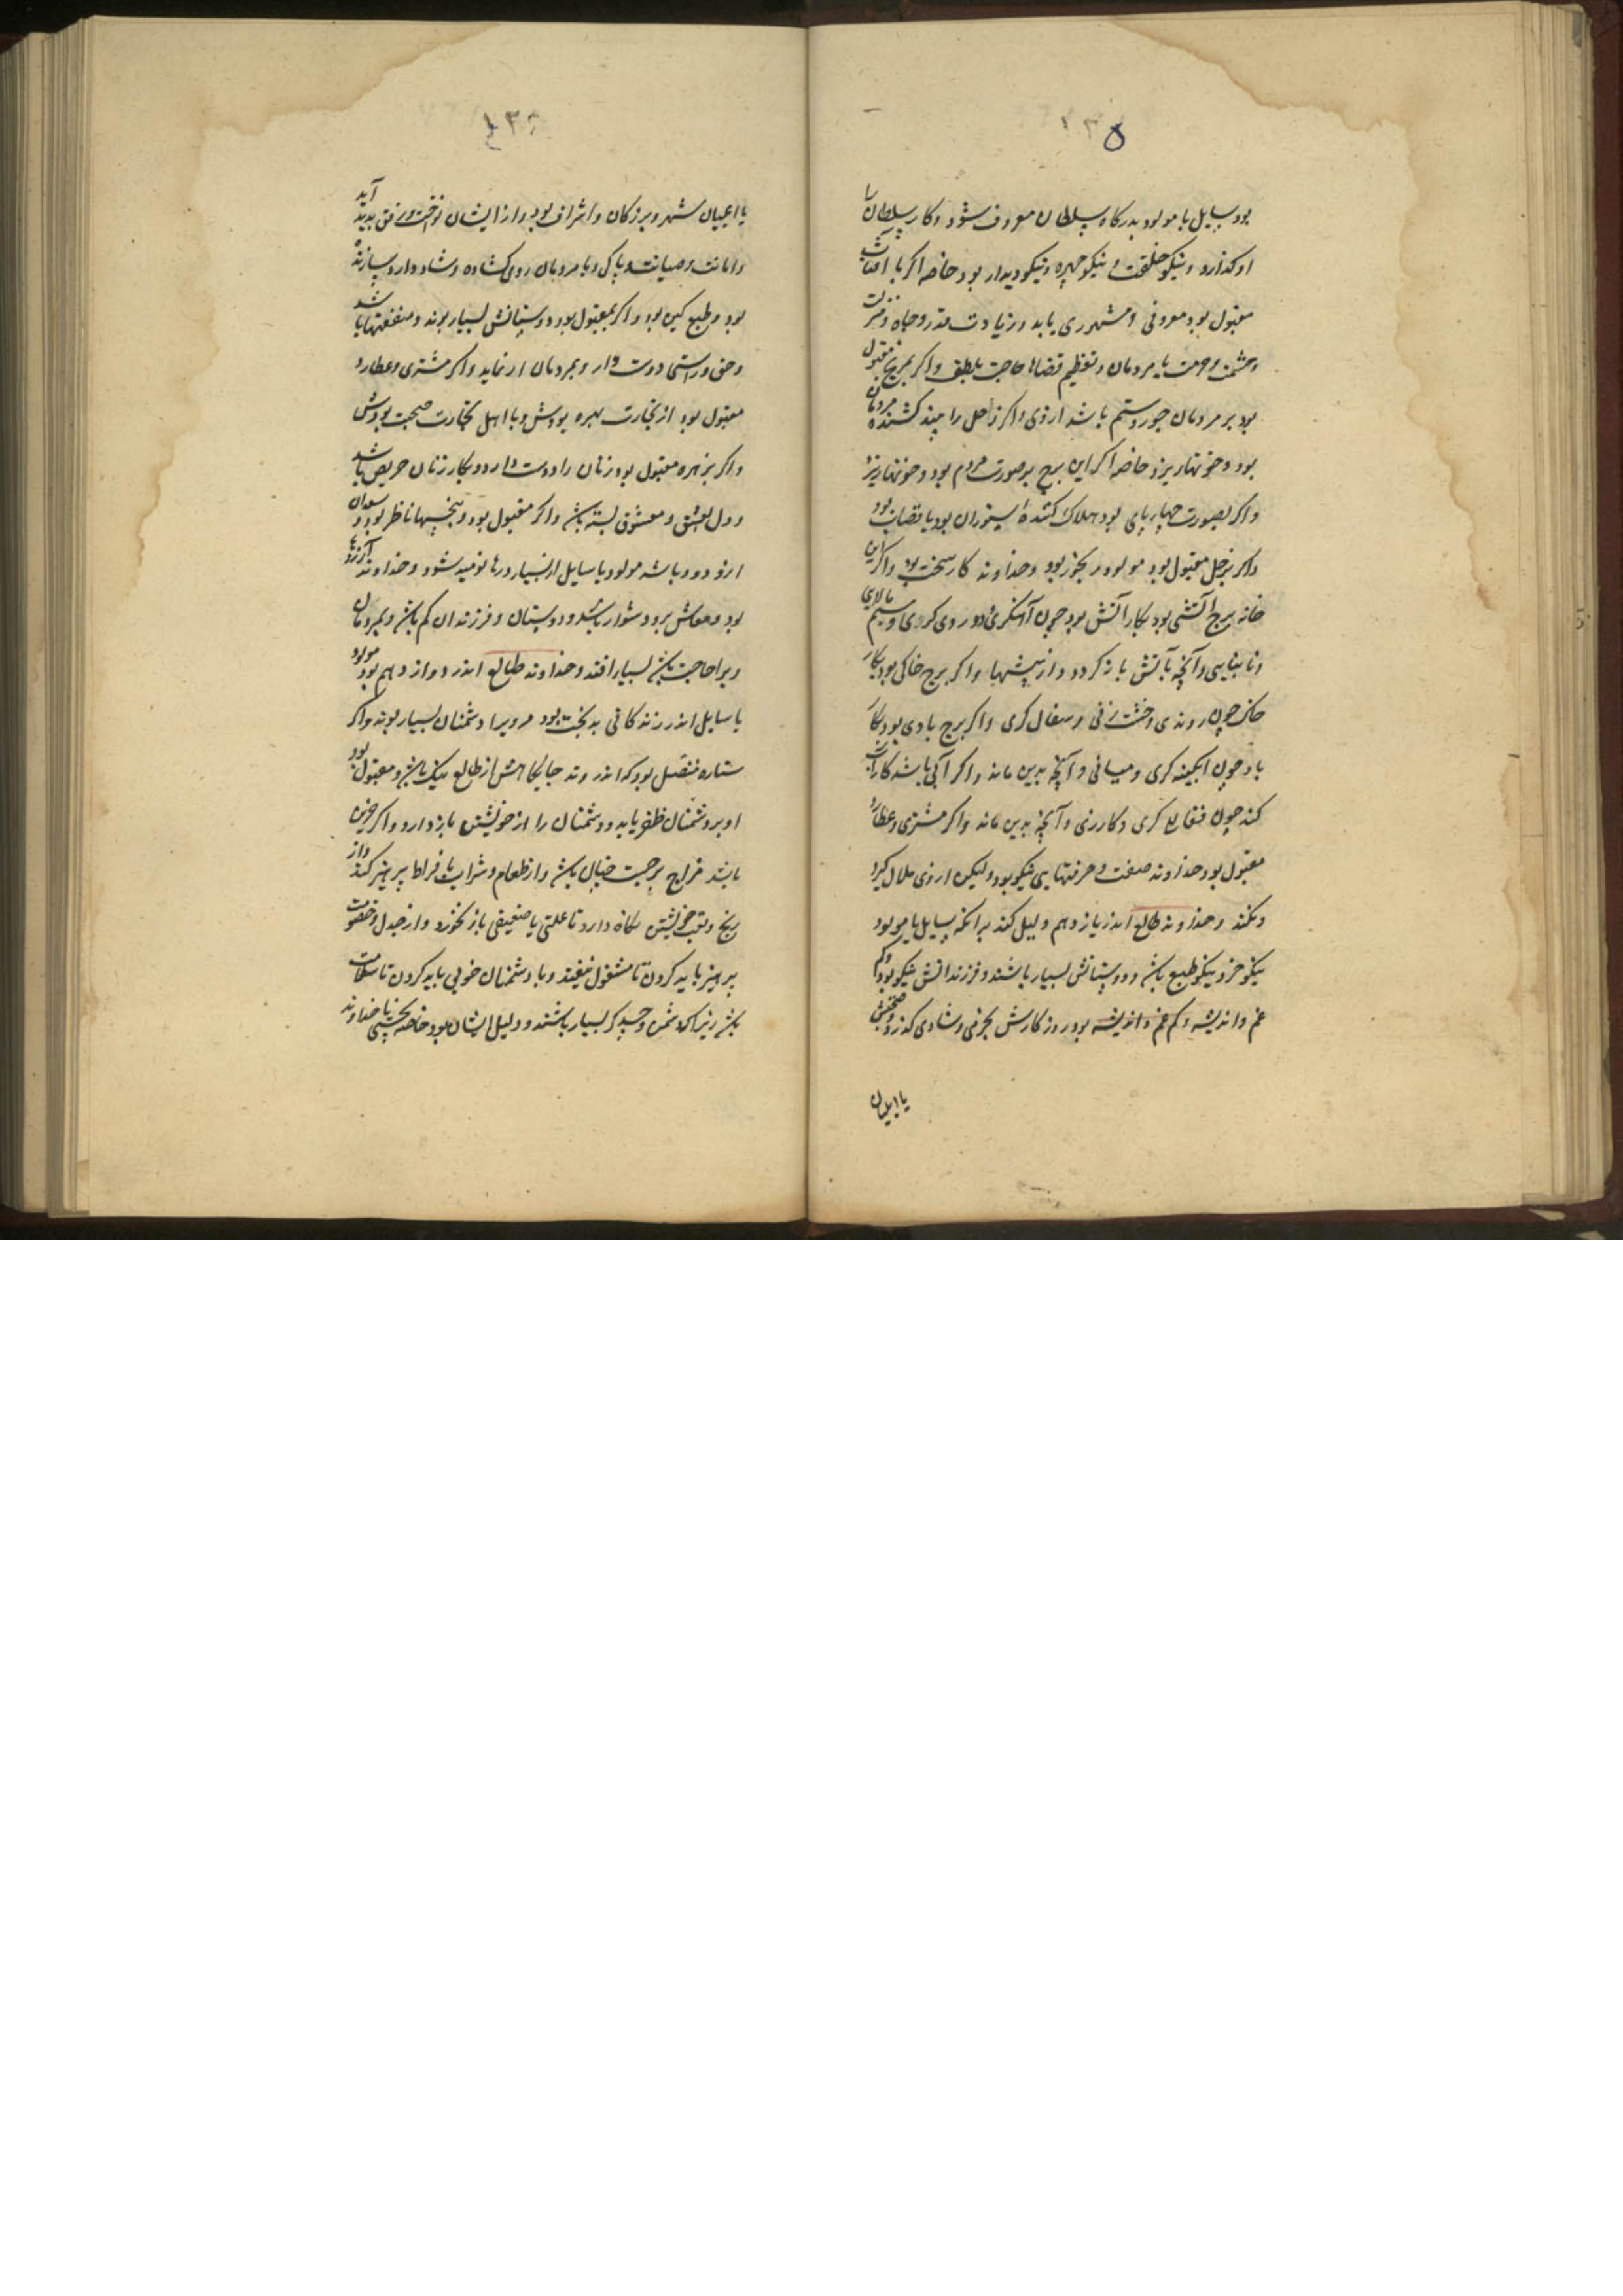 بود سایل یا مولود بدرکاه سلطان معروف شود و کار سلطان را
او کذارد و نیکو خلقت و نیکو چهره و نیکو دیدار بود خاصه اکر با آفتاب
مقبول بود معروفی و مشهوری یابد و زیادت قدر و جاه و منزلت
و حشمت و حرمت یا مردمان و تعظیم قضاها حاجت بلطف و اکر بمریخ مقبول
بود بر مردمان جور و ستم باشد ازوی و اکر زحل را بیند کشنده مردمان
بود و خونها ریزد خاصه اکر این برج بر صورت مردم بود و خونها ریزد
و اکر بصورت چهارپای بود هلاک کننده ستوران بود یا قصاب بود
و اکر بزحل مقبول بود مولود رنجور بود و خداوند کار سخت بود و اکر این
خانه برج آتشی بود بکار آتش بود چون آهنکری و روی کری و سیم پالای
و نانبایی و آنچه بآتش باز کردد و از پیشها و اکر برج خاکی بود بکار
خاک چون روندی و خشت زنی و سفال کری و اکر برج بادی بود بکار
باد چون آبکینه کری و میانی و آنچه بدین ماند و اکر آبی باشد کار آب
کند چون فقاع کری و کازری و آنچه بدین ماند و اکر مشتری و عطارد
مقبول بود خداوند صفت و حرفتهایی نیکو بود و لیکن ازوی ملال کیرد
و نکند و خداوند طالع اندر یازدهم دلیل کند بر آنکه سایل یا مولود
نیکو خو و نیکو طبع باشد و دوستانش بسیار باشند و فرزندانش نیکو بود و کم
غم و اندیشه و کم غم و اندیشه بود روزکارش بخرمی و شادی کذرد و صحبتش
یا اعیان
۱۳۵
یا اعیان شهر و بزرکان و اشراف بود و از ایشان نواخت و رفق پدید آید
و امانت و صیانت و پاکی و با مردمان روی کشاده و شاد دارد و سازنده
بود و طبع کین بود و اکر مقبول بود دوستانش بسیار بوند و منفعتها باشد
و حق و راستی دوست دارد و بمردمان ار نماید و اکر مشتری و عطارد
مقبول بود از تجارت بهره بودش و با اهل تجارت صحبت بودش
و اکر بزهره مقبول بود زنان را دوست دارد و بکار زنان حریص باشد
و دل بعشق و معشوق بسته باشد و اکر مقبول بود و بنحسها ناظر بود و سعدان
ازو دور باشد مولود یا سایل از بسیار درها نومید شود و خداوند آرزوها
بود و معاش برو دشوار باشد و دوستان و فرزندان کم باشد و بمردمان
ویرا حاجت باشد بسیار افتد و خداوند طالع اندر دوازدهم بود مولود
یا سایل اندر زندکانی بدبخت بود مرویرا دشمنان بسیار بوند و اکر
ستاره متصل بود که اندر وتد جایکاهش از طالع نیک باشد و مقبول بود
او بر دشمنان ظفر یابد و دشمنان را از خویشتن باز دارد و اکر چنین
باشد مزاج بر حسب خیال باشد و از طعام و شراب بافراط پرهیز کند و از
رنج و تعب خویشتن نکاه دارد تا علتی یا ضعیفی باز نخورد و از جدل و خصومت
پرهیز باید کردن تا مشغول نیفتد و با دشمنان خوبی باید کردن تا سلامت
باشد زیرا که دشمن و حسدکر بسیار باشند و دلیل ایشان بود خاصه بنحسی یا خداوند